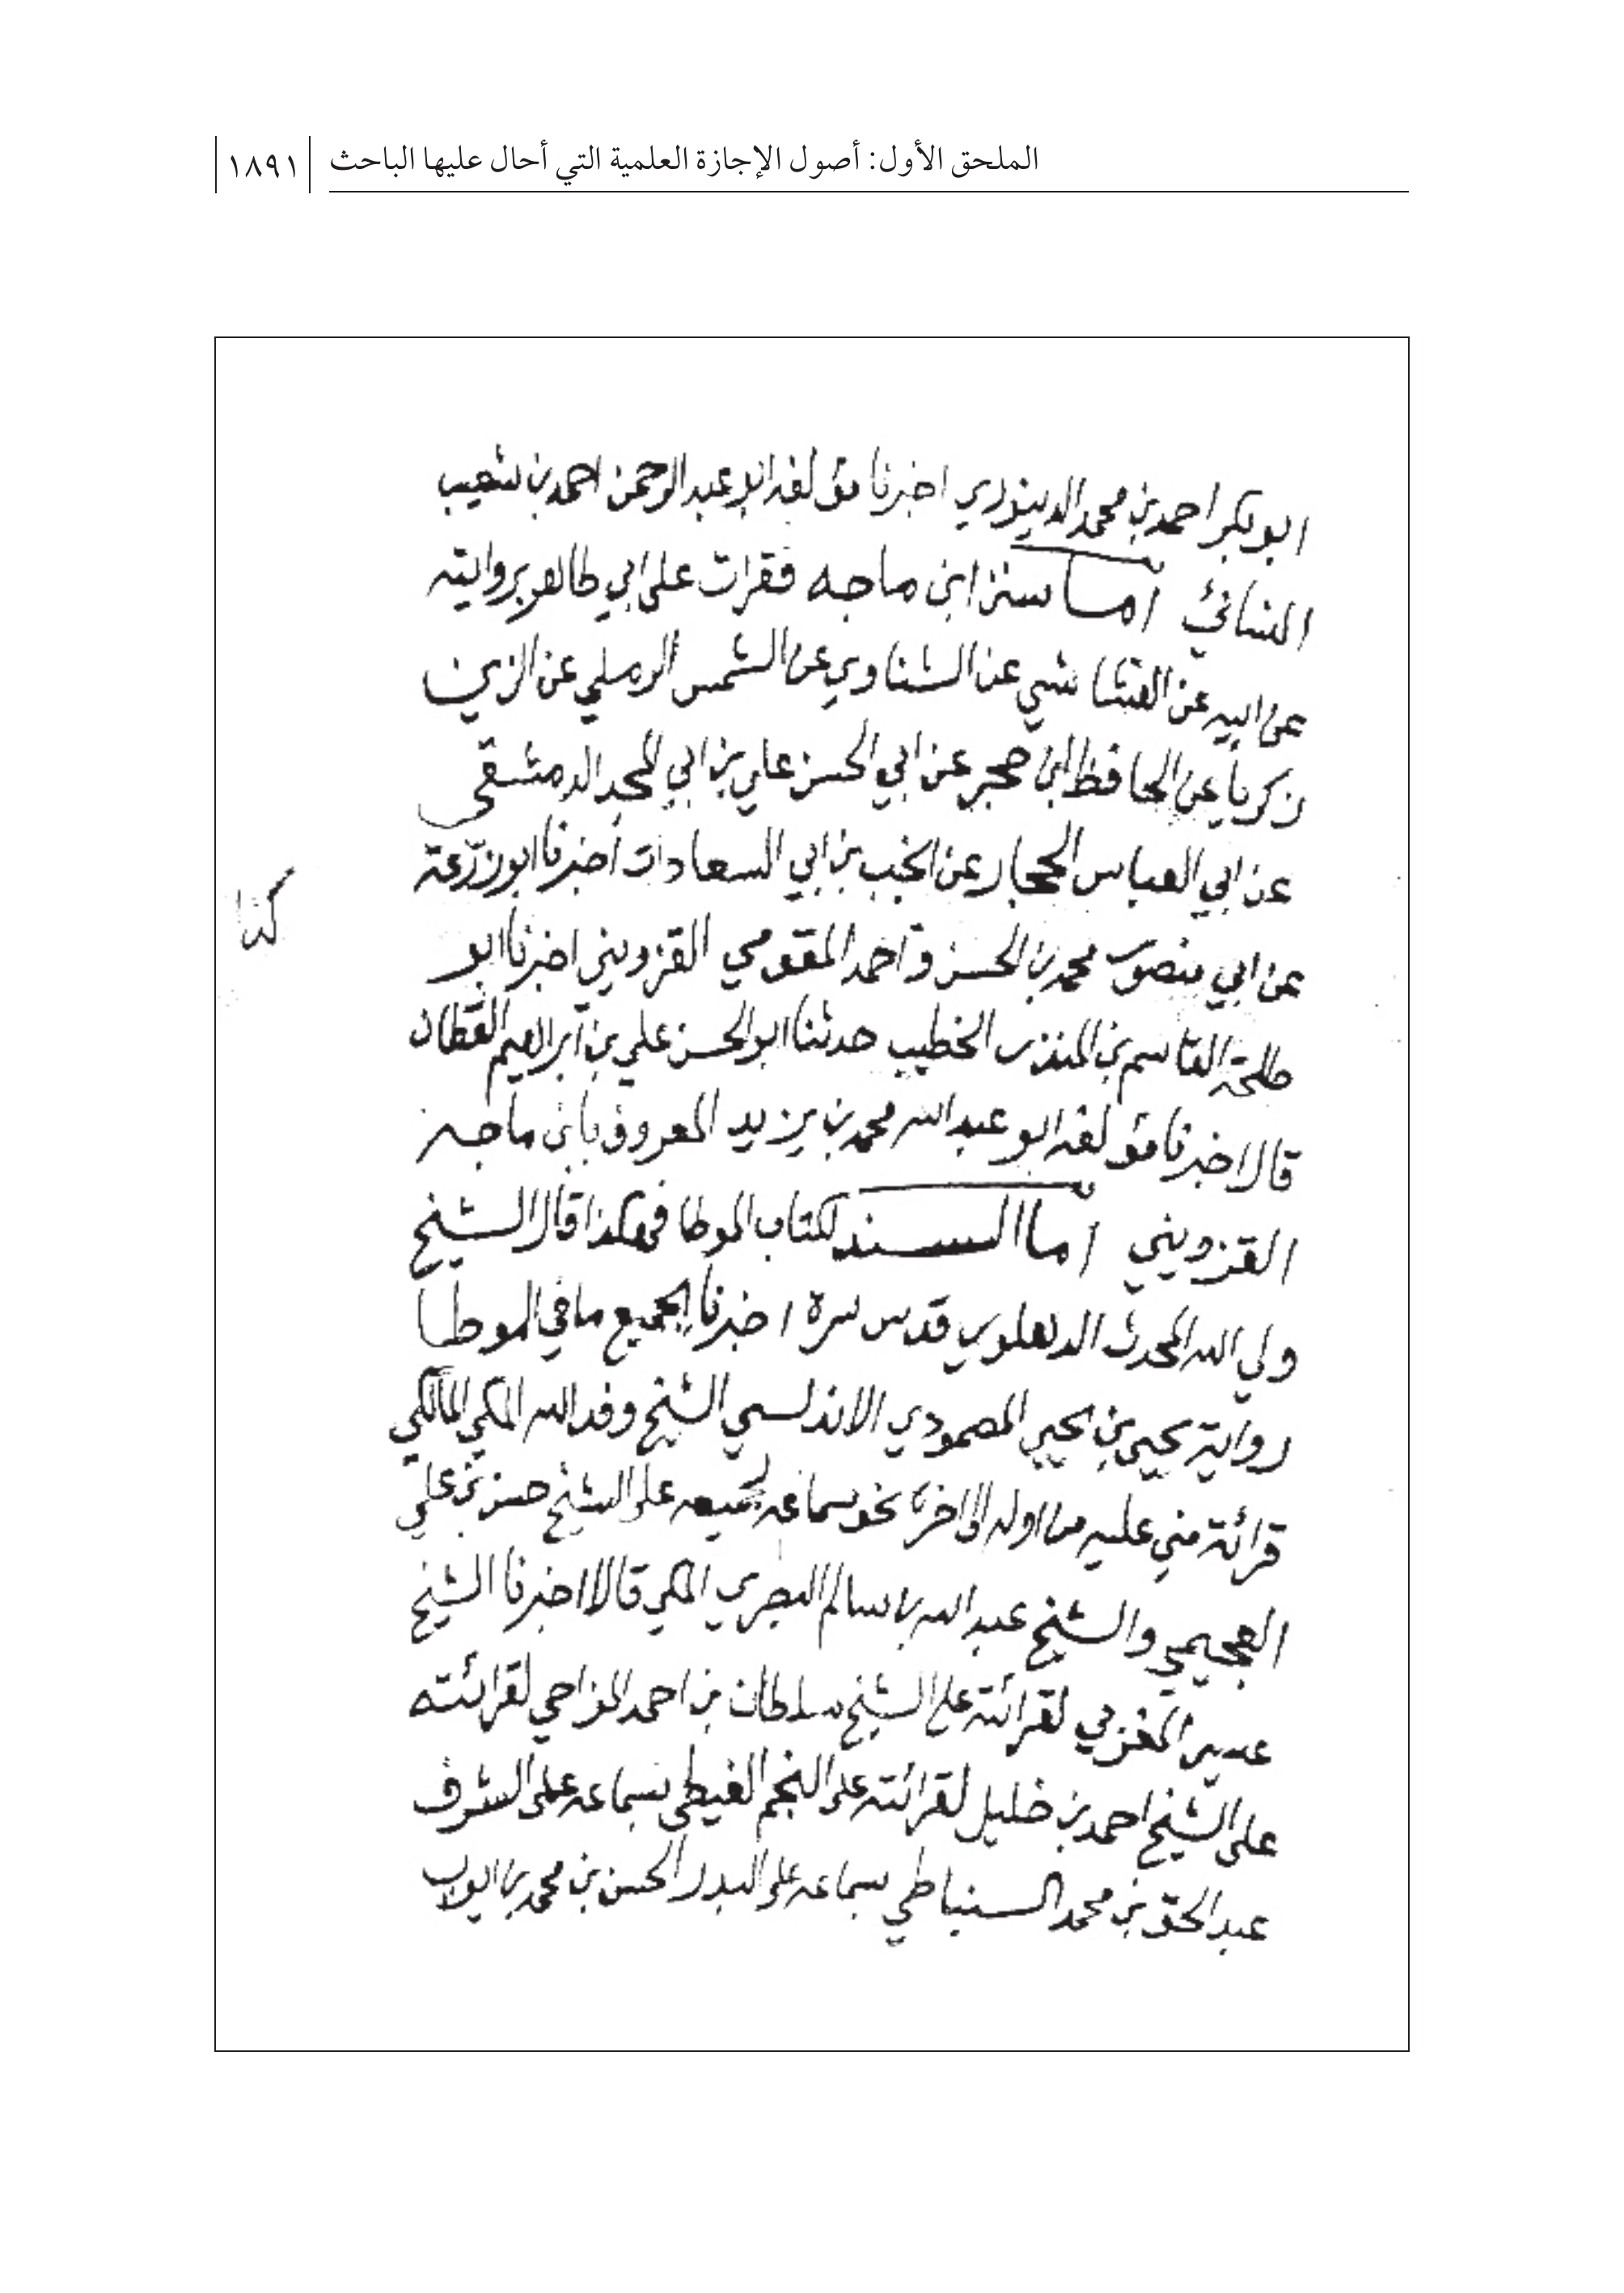 الملحق الأول: أصول الإجازة العلمية التي أحال عليها الباحث
١٨٩١
ابو بكر احمد بن محمد الدينوري اخبرنا مؤلفه ابو عبد الرحمن احمد بن شعيب
النسائي اما سنن ابن ماجه فقرات على ابي طاهر بروايته
عن ابيه عن القشاشي عن الشناوي عن الشمس الرملي عن الزين
زكريا عن الحافظ ابن حجر عن ابي الحسن علي بن ابي المجد الدمشقي
عن ابي العباس الحجار عن انجب بن ابي السعادات اخبرنا ابو زرعة
كذا
عن ابي منصور محمد بن الحسن و احمد المقومي القزويني اخبرنا ابو
طلحة القاسم بن المنذر الخطيب حدثنا ابو الحسن علي بن ابراهيم القطان
قال اخبرنا مؤلفه ابو عبد الله محمد بن يزيد المعروف بابن ماجه
القزويني اما السند لكتاب الموطا فهكذا قال الشيخ
ولي الله المحدث الدهلوي قدس سره اخبرنا بجميع ما في الموطا
رواية يحيى بن يحيى المصمودي الاندلسي الشيخ وفد الله المكي المالكي
قرائة مني عليه من اوله الى اخره بحق سماعه لجميعه على الشيخ حسن بن علي
العجيمي والشيخ عبد الله بن سالم البصري المكي قالا اخبرنا الشيخ
عيسى المغربي لقرائته على الشيخ سلطان بن احمد المزاحي لقرائته
على الشيخ احمد بن خليل لقرائته على النجم الغيطي بسماعه على الشرف
عبد الحق بن محمد السنباطي بسماعه على البدر الحسن بن محمد بن ايوب